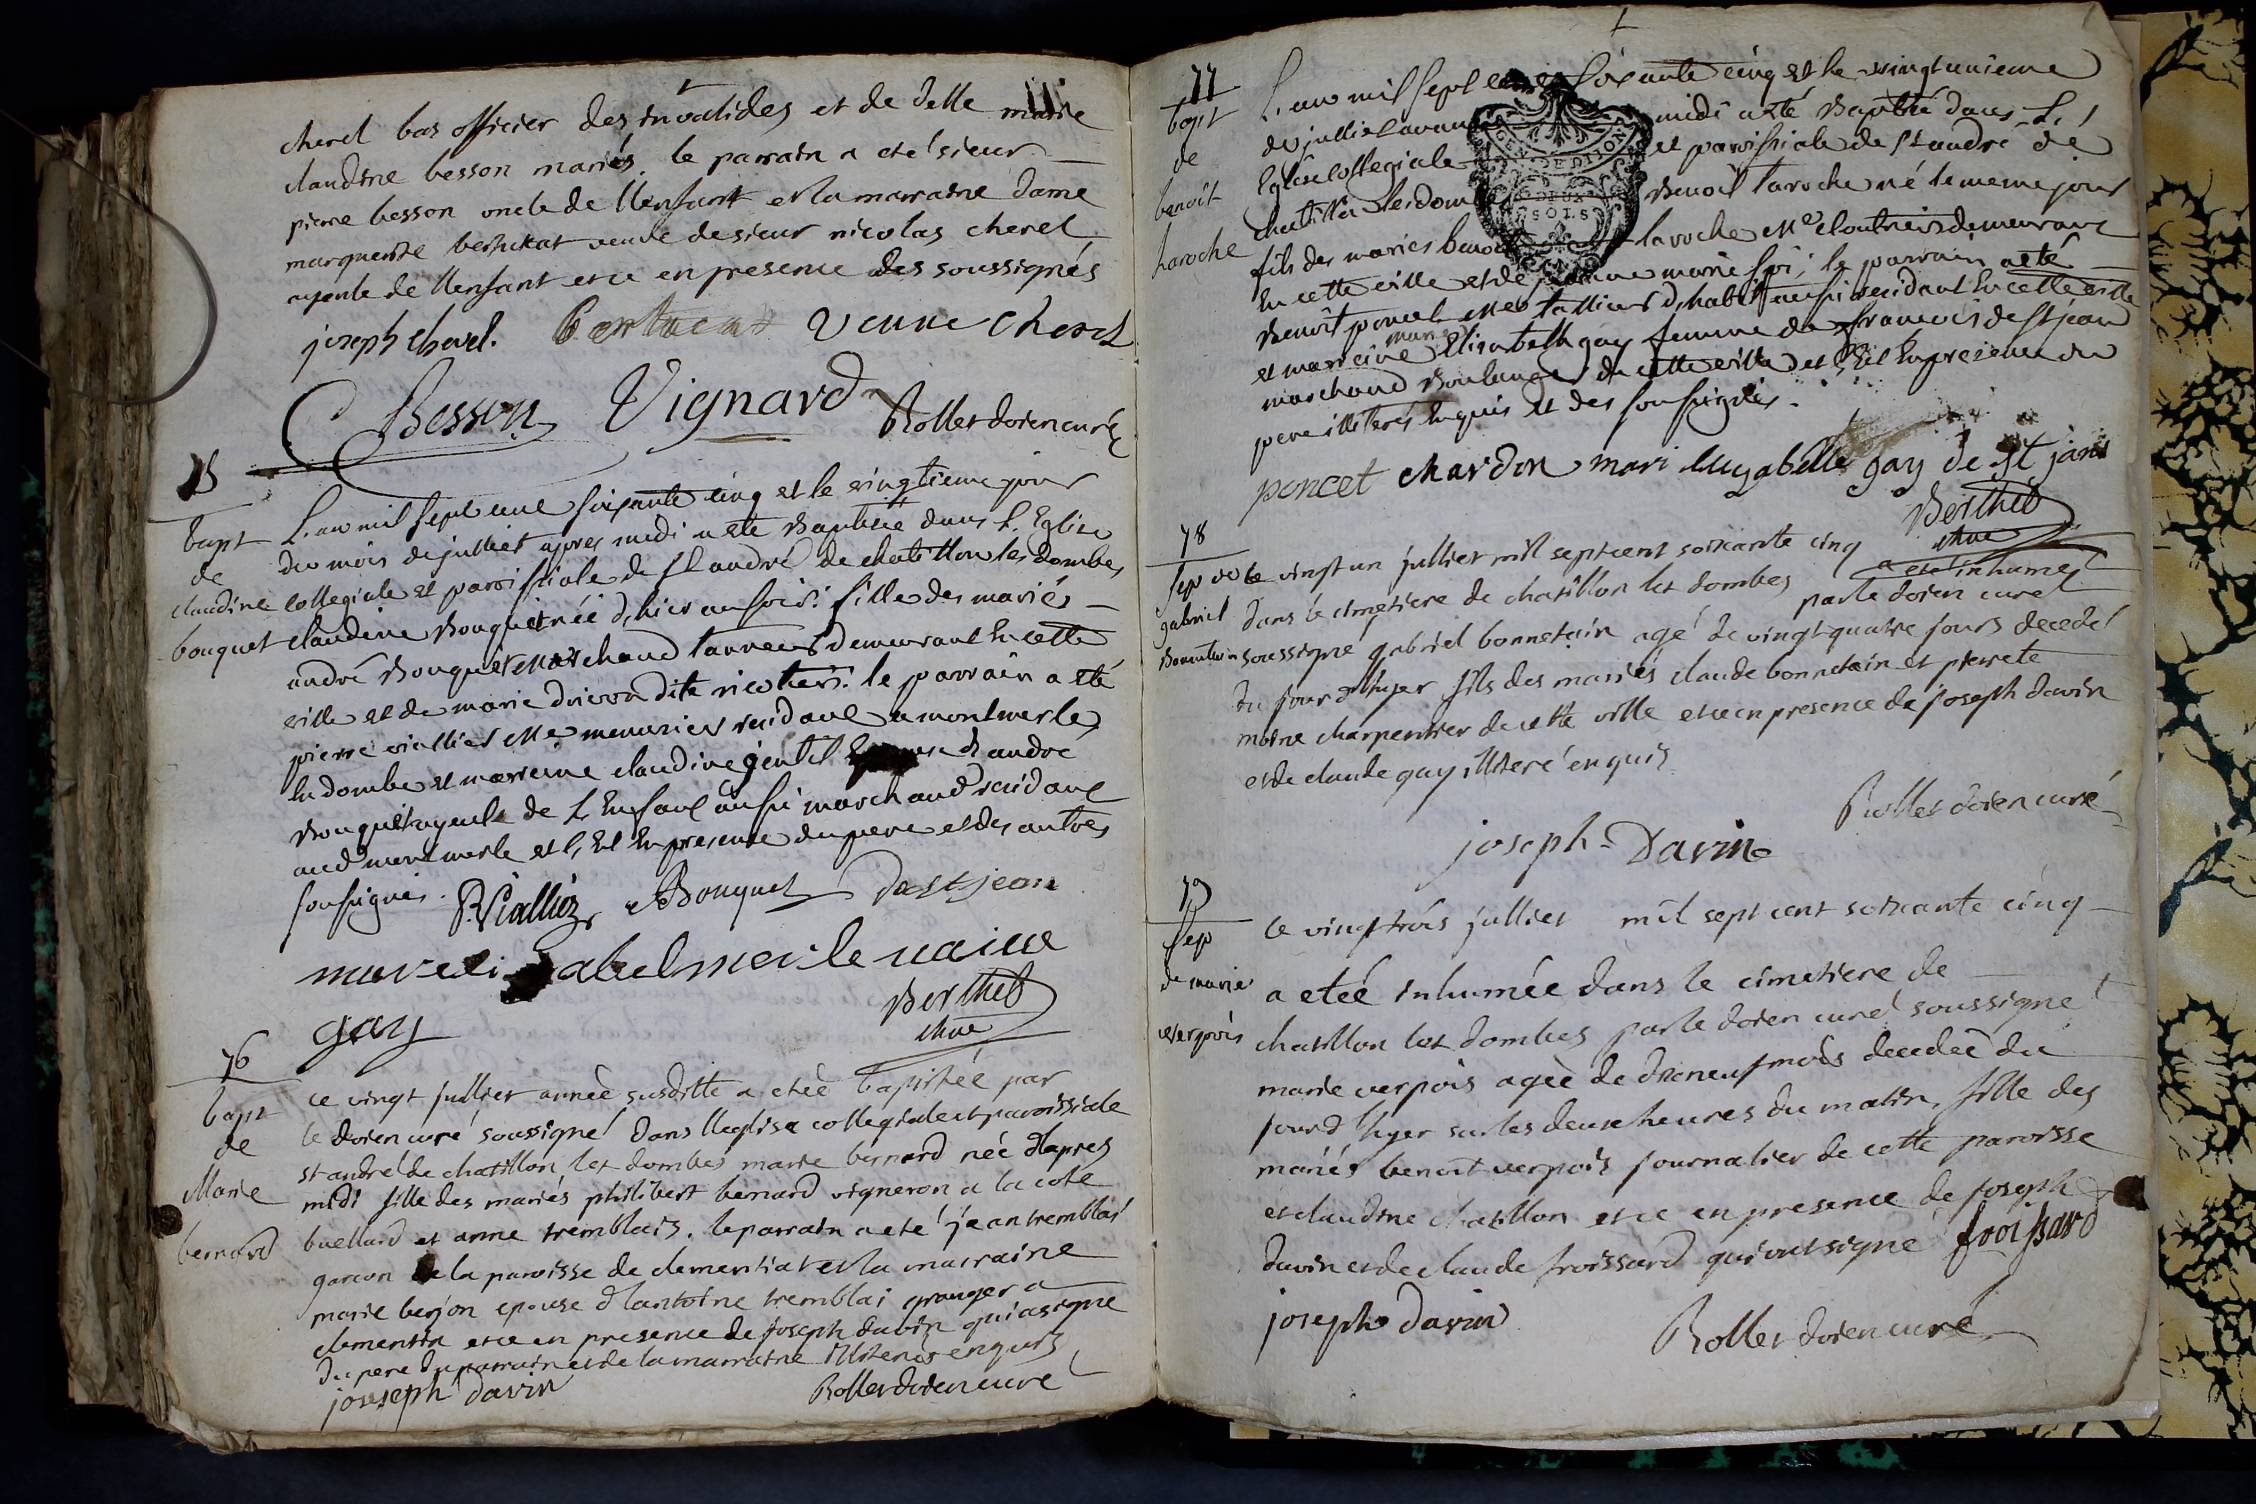 cherel bas officier des invalides et de delle marie
claudine besson mariés. le parrain a eté sieur
pierre besson oncle de l'enfant et la marraine dame
marguerite veuve de sieur nicolas cherel
ayeule de l'enfant et ce en presence des soussignés
joseph cherel. veuve cherel
Besson Vignard Rollet doien curé
75
bapt
de
claudine
bouquet
L'an mil sept cent soixante cinq et le vingtieme jour
du mois de julliet apres midi a eté Baptisée dans L'Eglise
collegiale et paroissiale de st andré de chatillon les dombes
claudine Bouquet née d'hier au soir: fille des mariés
andré Bouquet marchand tanneur demeurant En cette
ville et de marie dite le parrain a eté
pierre viallier Me menuisier residant a montmerle
En dombe et marreine claudine gentil Epouse d'andré
Bouquet ayeule de L'Enfant aussi marchand residant
aud montmerle et c'Est En presence du pere et des autres
soussignés. P. Viallier Bouquet De st jean
gay Berthet
vicaire
76
bapt
de
Marie
bernard
le vingt julliet année susditte a eteé baptisée par
le doien curé soussigné dans l'eglise collegiale et paroissiale
st andré de chatillon les dombes marie bernard née d'apres
midi fille des mariés philibert bernard vigneron a la cote
buellard et anne tremblais. le parrain a eté jean tremblai
garcon de la paroisse de clementiat et la marraine
marie berjon epouse d'antoine tremblai granger a
clementia et ce en presence de joseph davin qui a signé
du pere du parrain et de la marraine illiterés enquis
joseph davin Rollet doien curé
77
bapt
de
benoît
laroche
L'an mil sept cent soixante cinq et le vingtunieme
de julliet avant midi a eté Baptisé dans L'
Eglise collegiale et paroissiale de st andré de
chatillon les dombes Benoit laroche né le meme jour
fils des mariés benoit laroche Me cloutrier demeurant
En cette ville et de marie le parrain a eté
Benoit poncet Me tallieur d'habit aussi residant En cette ville
et marreine marie Elisabeth gay femme de francois de st jean
marchand Boulanger de cette ville et c'Est En presence du
pere illiteré Enquis et des soussignés.
poncet chardon mari elizabelle gay de st jani
Berthet
vicaire
78
sep de
gabriel
Bonnetain
le vingt un julliet mil septcent soixante cinq a eté inhumé
dans le cimetiere de chatillon les dombes par le doien curé
soussigné gabriel bonnetain agé de vingt quatre jours decedé
du jour d'hyer fils des mariés claude bonnetain et pierrete
moine charpentier de cette ville et ce en presence de joseph davin
et de claude gay illiteré enquis
joseph Davin Rollet doien curé
79
sep
de marie
verpois
le vingt trois julliet mil sept cent soixante cinq
a eteé inhumée dans le cimetiere de
chatillon les dombes par le doien curé soussigné
marie verpois ageè de dixneuf mois decedeè du
jour d'hyer sur les deux heures du matin, fille des
mariés benoit verpois journalier de cette paroisse
et claudine chatillon et ce en presence de joseph
davin et de claude froissard qui ont signé froissard
joseph davin Rollet doien curé